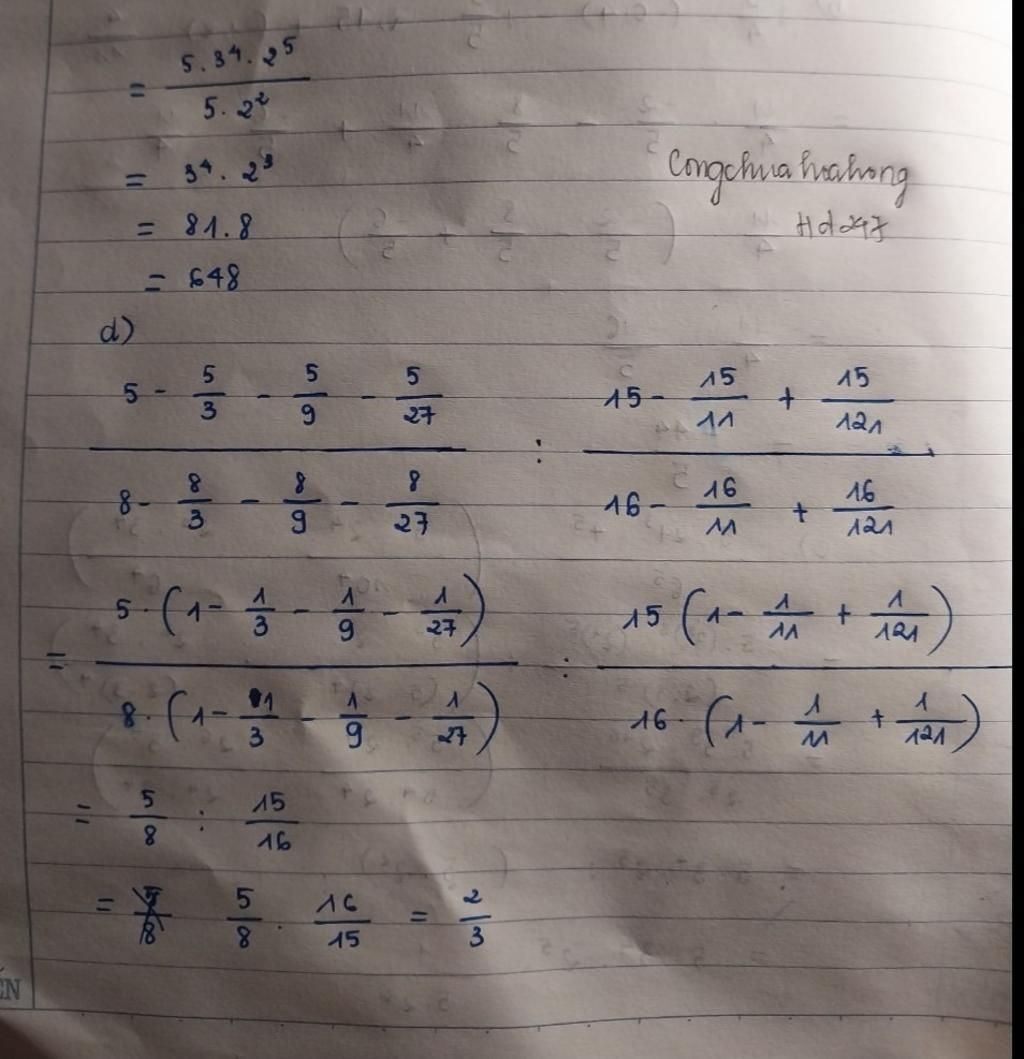 = (5 . 3⁴ . 2⁵) / (5 . 2²)
= 3⁴ . 2³
Congchuahoahong
= 81.8
Hd247
= 648
d)
(5 - 5/3 - 5/9 - 5/27) / (8 - 8/3 - 8/9 - 8/27) : (15 - 15/11 + 15/121) / (16 - 16/11 + 16/121)
= (5 . (1 - 1/3 - 1/9 - 1/27)) / (8 . (1 - 1/3 - 1/9 - 1/27)) : (15 (1 - 1/11 + 1/121)) / (16 . (1 - 1/11 + 1/121))
= 5/8 : 15/16
= 5/8 . 16/15 = 2/3
ẾN